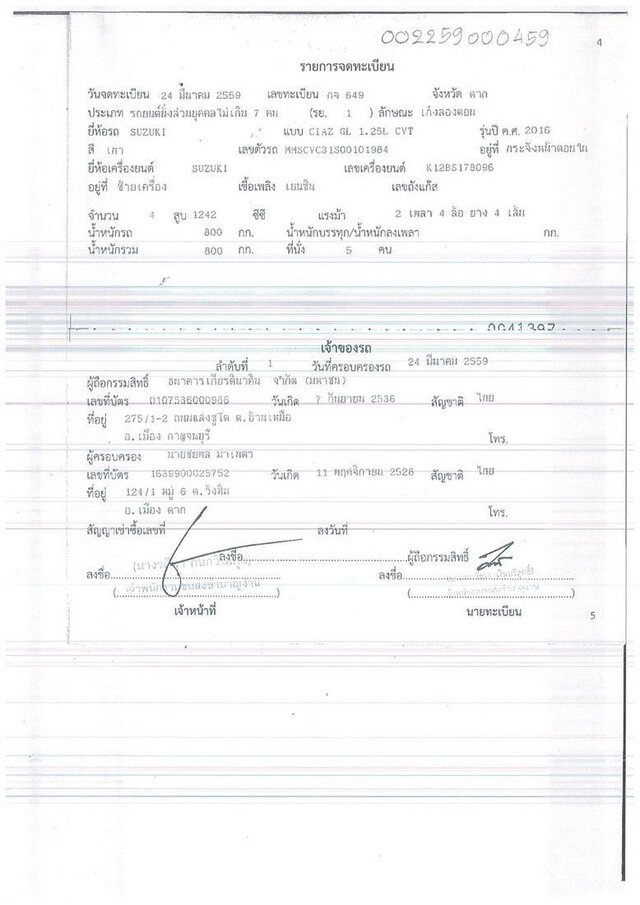 002259000459
4
รายการจดทะเบียน
วันจดทะเบียน 24 มีนาคม 2559 เลขทะเบียน กจ 649 จังหวัด ตาก
ประเภท รถยนต์นั่งส่วนบุคคลไม่เกิน 7 คน (รย. 1 ) ลักษณะ เก๋งสองตอน
ยี่ห้อรถ SUZUKI แบบ CIAZ GL 1.25L CVT รุ่นปี ค.ศ. 2016
สี เทา เลขตัวรถ MMSCVC31S00101984 อยู่ที่ กระจังหน้าตอนใน
ยี่ห้อเครื่องยนต์ SUZUKI เลขเครื่องยนต์ K12BS178096
อยู่ที่ ซ้ายเครื่อง เชื้อเพลิง เบนซิน เลขถังแก๊ส
จำนวน 4 สูบ 1242 ซีซี แรงม้า 2 เพลา 4 ล้อ ยาง 4 เส้น
น้ำหนักรถ 800 กก. น้ำหนักบรรทุก/น้ำหนักลงเพลา กก.
น้ำหนักรวม 800 กก. ที่นั่ง 5 คน
0041397
เจ้าของรถ
ลำดับที่ 1 วันที่ครอบครองรถ 24 มีนาคม 2559
ผู้ถือกรรมสิทธิ์ ธนาคารเกียรตินาคิน จำกัด (มหาชน)
เลขที่บัตร 0107536000986 วันเกิด 7 กันยายน 2536 สัญชาติ ไทย
ที่อยู่ 275/1-2 ถนนแสงชูโต ต.บ้านเหนือ
อ.เมือง กาญจนบุรี โทร.
ผู้ครอบครอง นายชยทล มาเนตร
เลขที่บัตร 1639900025752 วันเกิด 11 พฤศจิกายน 2528 สัญชาติ ไทย
ที่อยู่ 124/1 หมู่ 6 ต.วังหิน
อ.เมือง ตาก โทร.
สัญญาเช่าซื้อเลขที่ ลงวันที่
ลงชื่อ ผู้ถือกรรมสิทธิ์
ลงชื่อ ลงชื่อ
เจ้าพนักงานขนส่งชำนาญงาน
เจ้าหน้าที่ นายทะเบียน
5